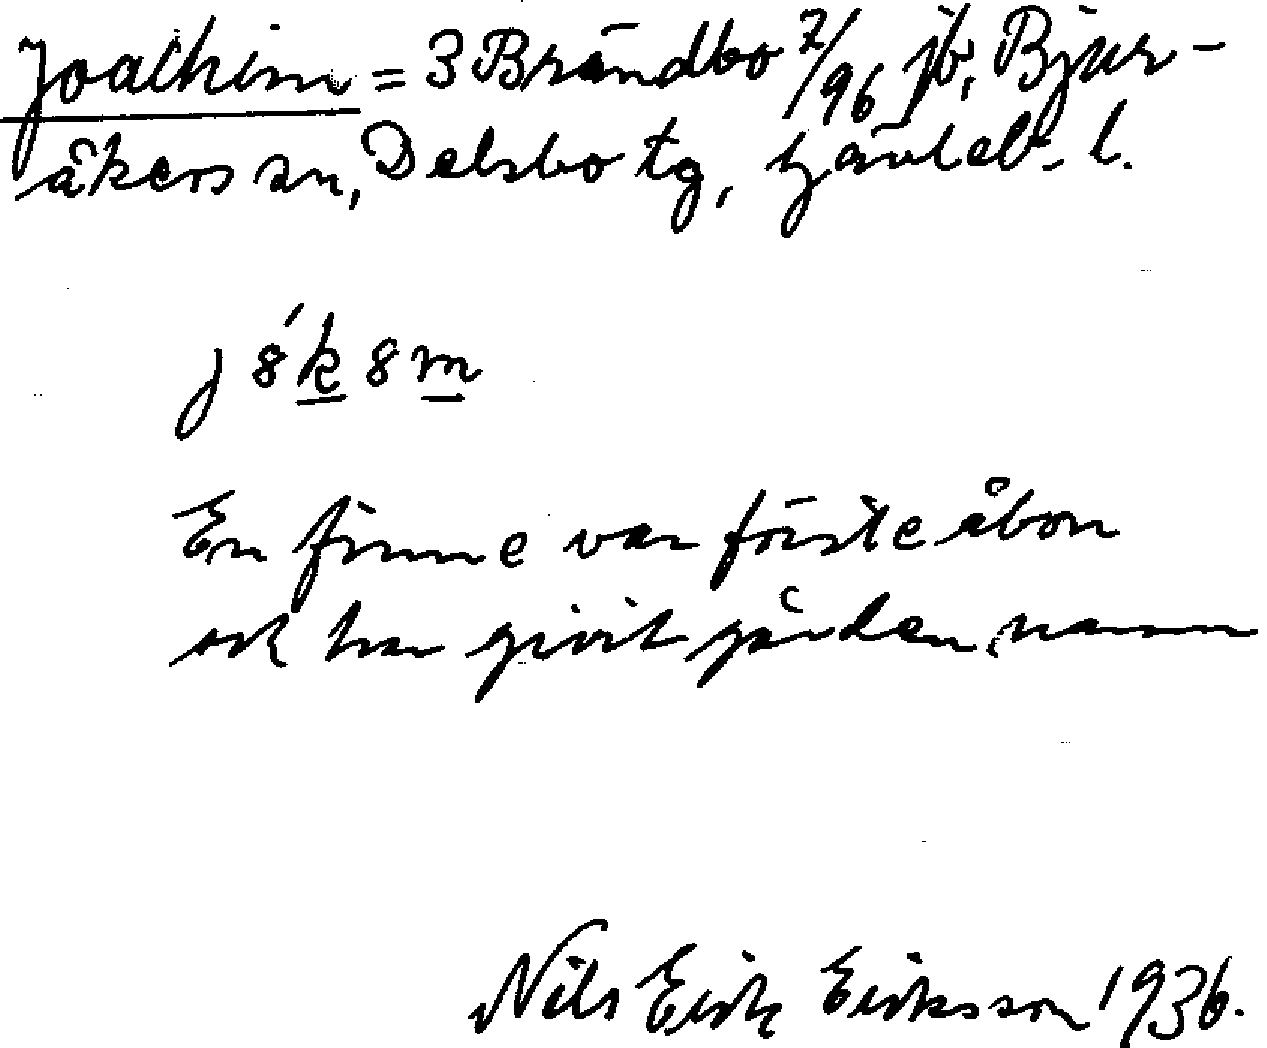 Joachim = 3 Brändbo 7/96 jb, Bjur-
åkers sn, Delsbo tg, Gävleb. l.
j8́k8m
En finne var förste åbon
och har givit gården namn
Nils Erik Eriksson 1936.